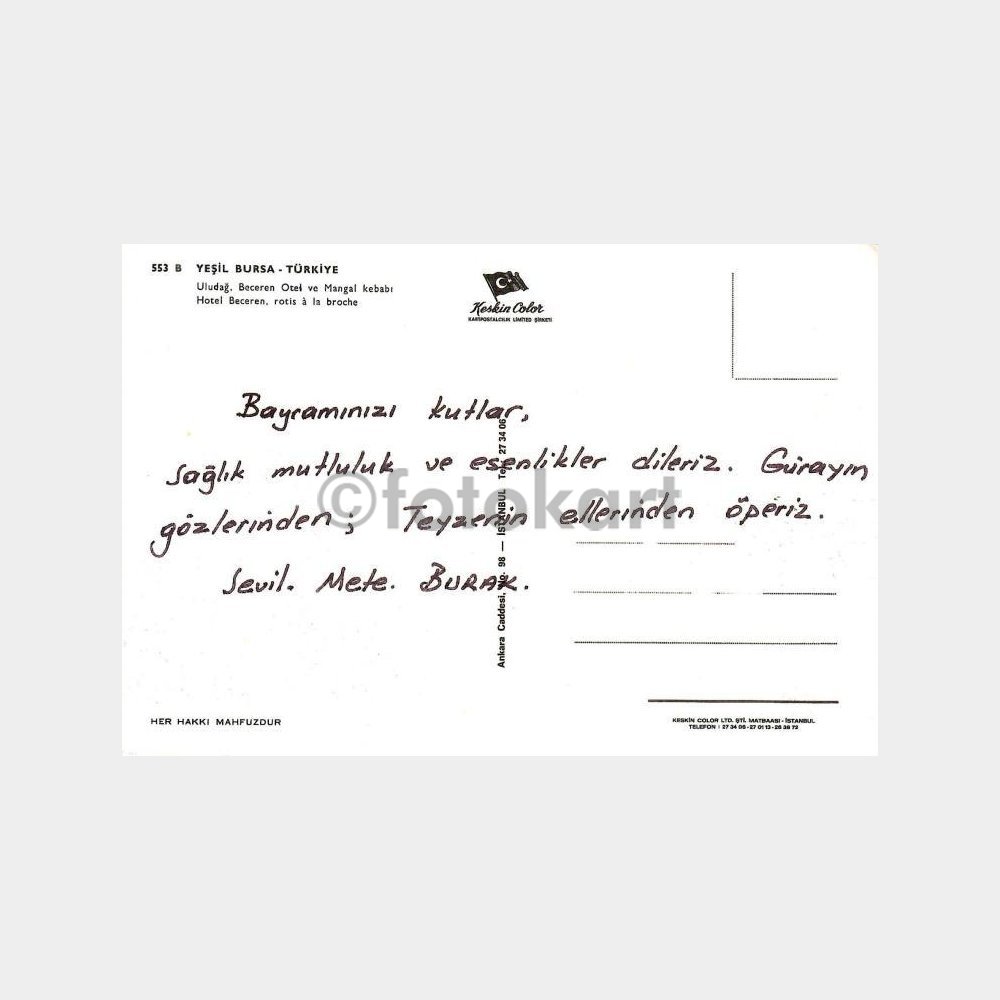 553 B YEŞİL BURSA - TÜRKİYE
Uludağ, Beceren Otel ve Mangal kebabı
Hotel Beceren, rotis à la broche
Keskin Color
KARTPOSTALCILIK LİMİTED ŞİRKETİ
Bayramınızı kutlar,
sağlık mutluluk ve esenlikler dileriz. Gürayın
gözlerinden; Teyzenin ellerinden öperiz.
Sevil. Mete. BURAK.
Ankara Caddesi, No. 98 — İSTANBUL Tel: 27 34 06
©fotokart
HER HAKKI MAHFUZDUR
KESKİN COLOR LTD. ŞTİ. MATBAASI - İSTANBUL
TELEFON : 27 34 06 - 27 01 13 - 26 39 72